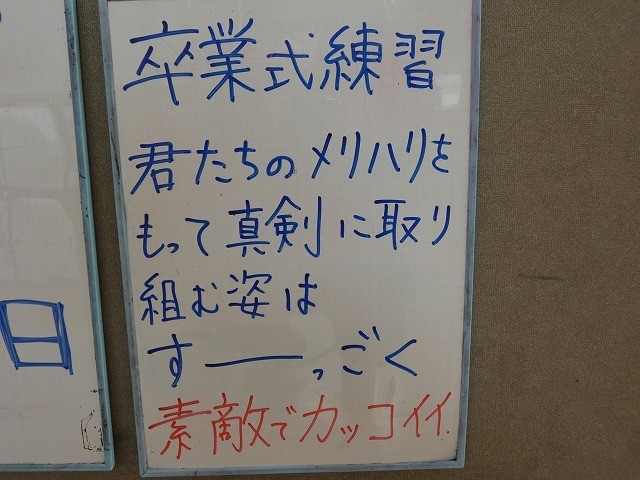 卒業式練習
君たちのメリハリを
もって真剣に取り
組む姿は
すーっごく
素敵でカッコイイ.
日